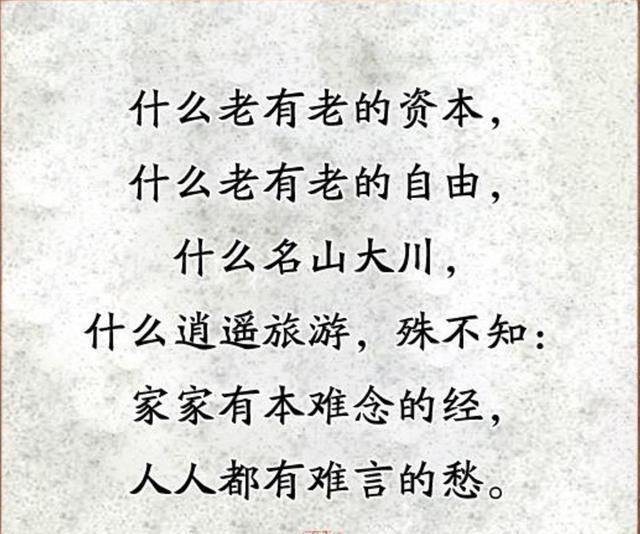 什么老有老的资本，
什么老有老的自由，
什么名山大川，
什么逍遥旅游，殊不知：
家家有本难念的经，
人人都有难言的愁。